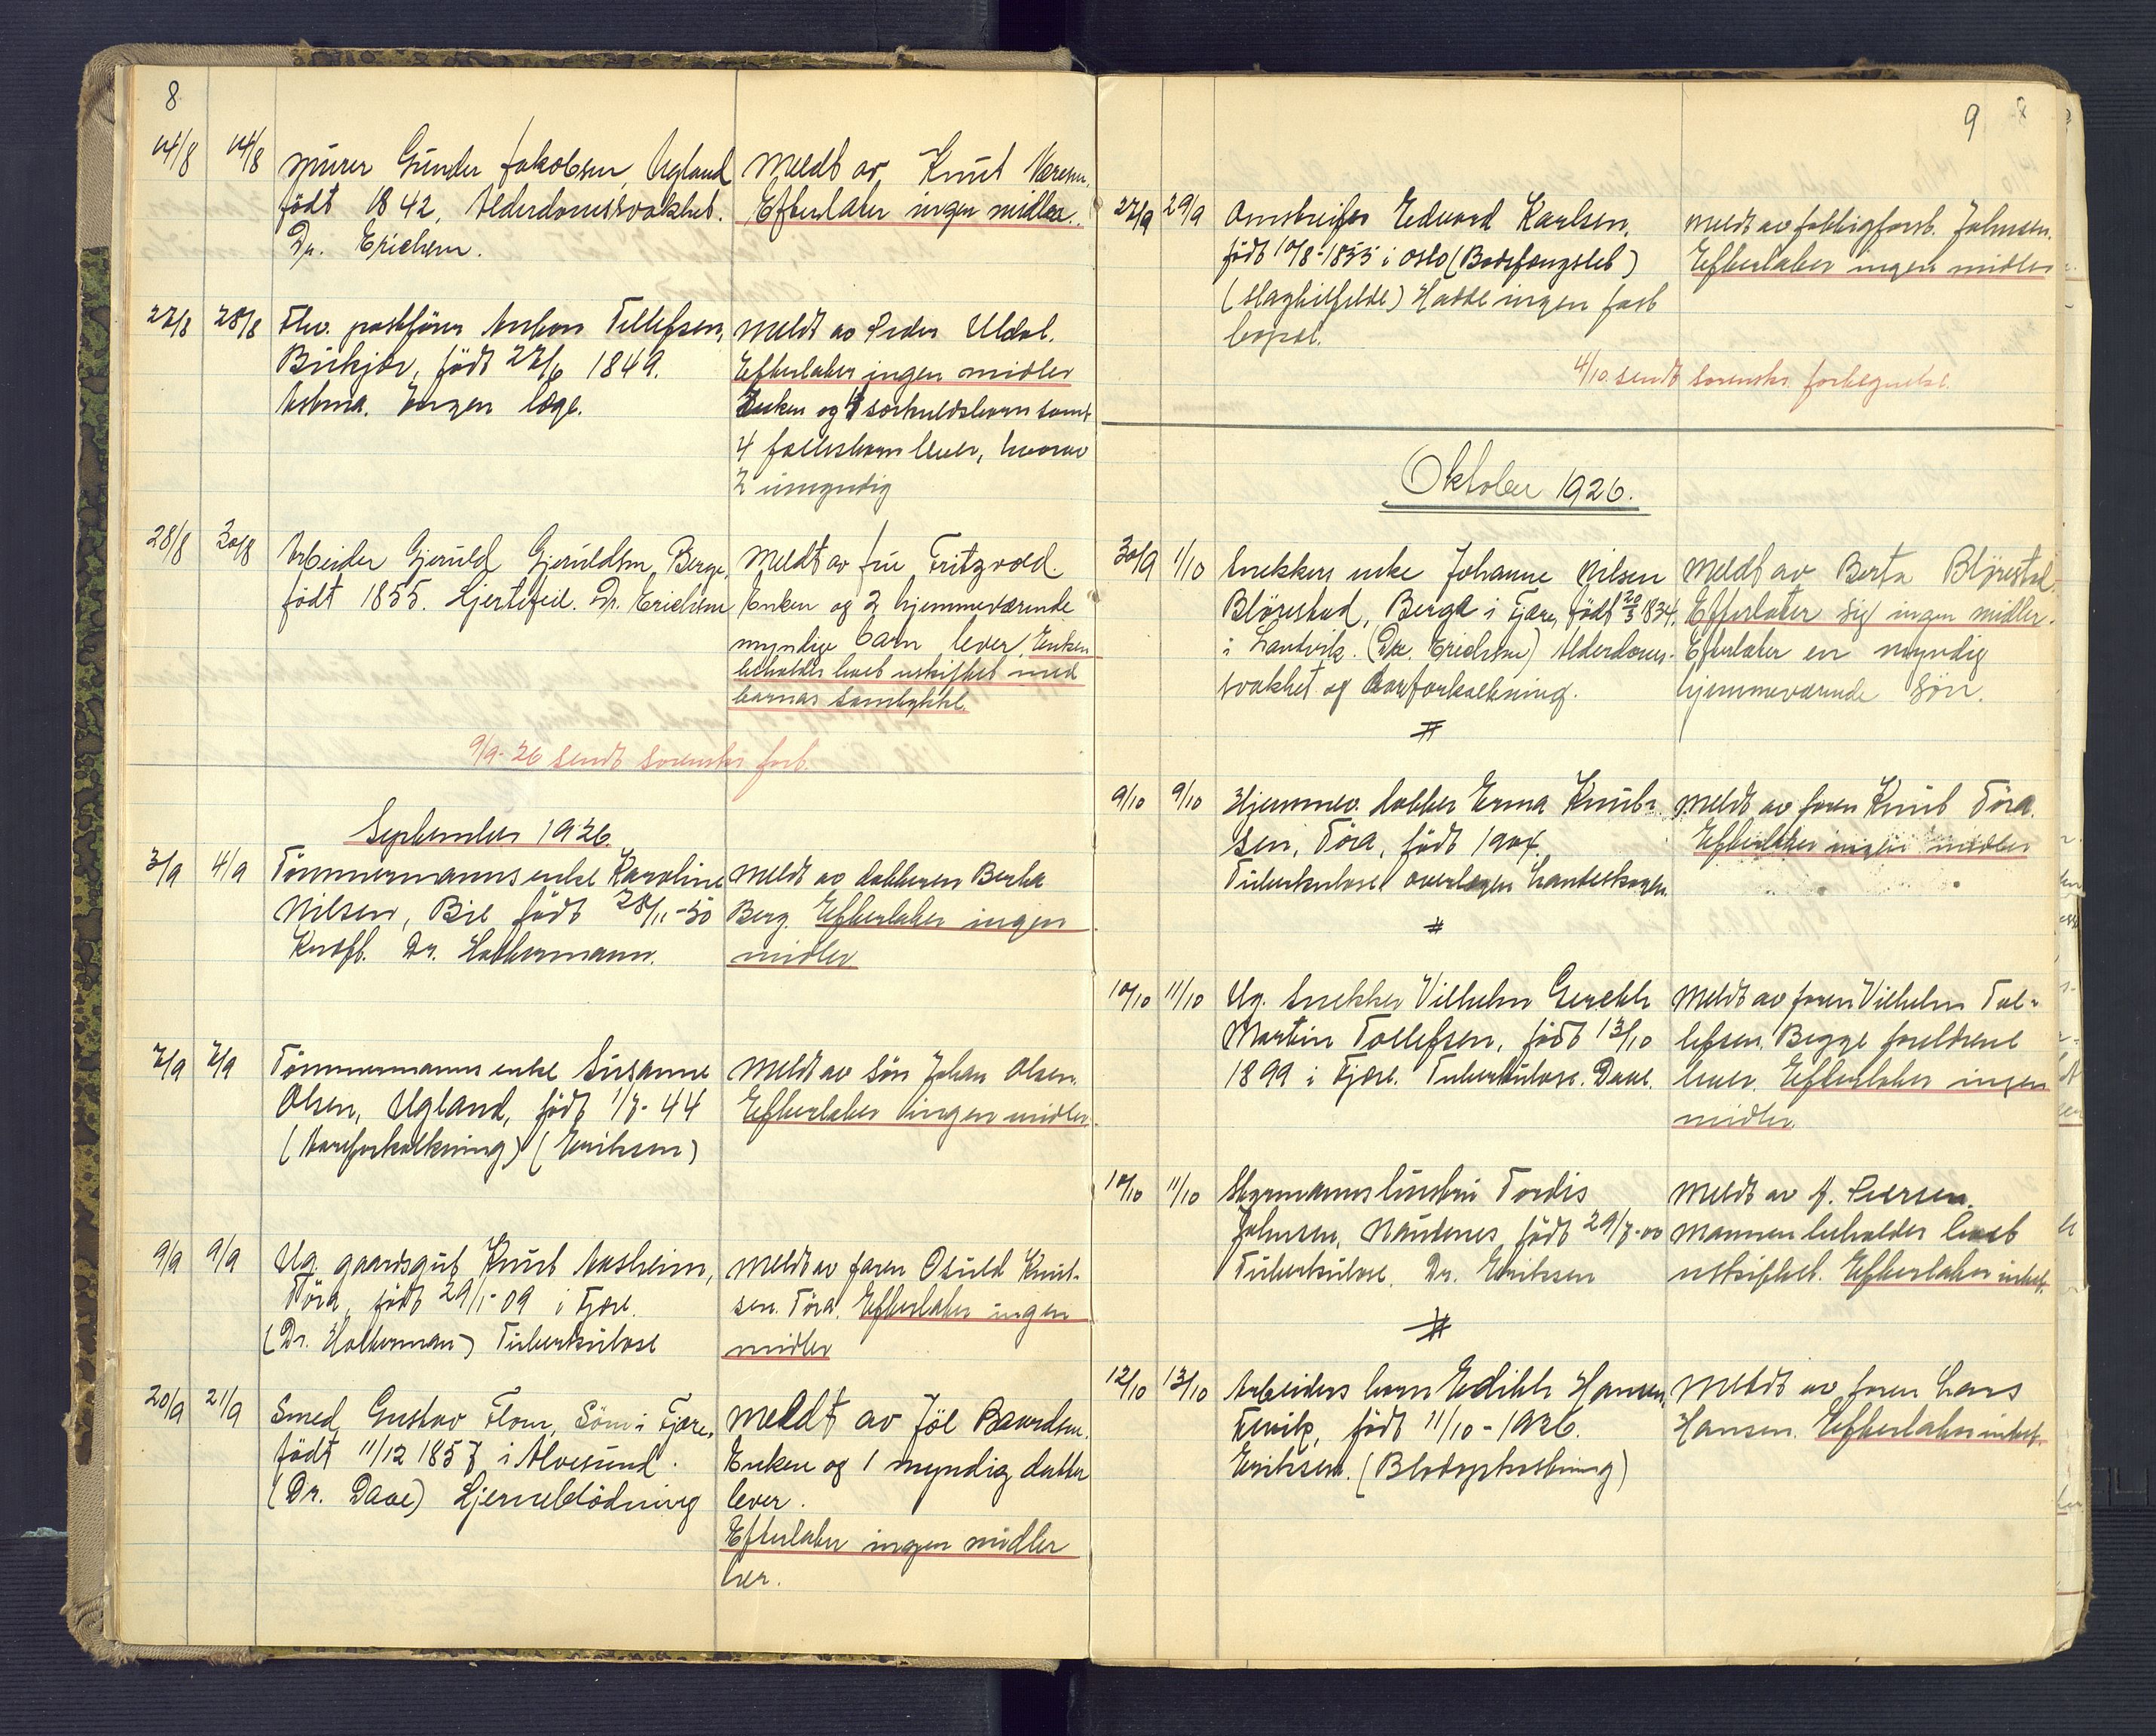 8
14/8 14/8 Murer Gunder Jakobsen, Ugland
født 1842, Alderdomssvakhet.
Dr. Erichsen.
Meldt av Knut
Efterlater ingen midler.
27/8 28/8 Fhv. postfører Anton Tellefsen,
Birkjær, født 27/6 1849.
Astma. Ingen læge.
Meldt av Peder Uldal.
Efterlater ingen midler
Enken og særkuldsbarn samt
4 fællesbarn lever, hvorav
2 umyndig
28/8 30/8 Arbeider Gjeruld Gjeruldsen, Berge,
født 1855. Hjertefeil. Dr. Erichsen
Meldt av fru Fritzvold.
Enken og 2 hjemmeværende
myndige barn lever. Enken
beholder boet uskiftet med
barnas samtykke.
9/9-26 sendt sorenskr. fort.
September 1926.
3/9 4/9 Tömmermannsenke Karoline
Nilsen, Bie født 28/11-50
Kræft. Dr. Holtermann.
Meldt av datteren Berta
Berg. Efterlater ingen
midler
7/9 7/9 Tömmermanns enke Susanne
Olsen, Ugland, födt 1/7-44
(Aareforkalkning) (Eriksen)
Meldt av sön Johan Olsen.
Efterlater ingen midler.
9/9 9/9 Ug. gaardsgut Knut Aasheim,
Töra, födt 29/1-09 i Fjære.
(Dr. Holterman) Tuberkulose
Meldt av faren Osuld Knut-
sen. Töra. Efterlater ingen
midler
20/9 21/9 Smed Gustav Flom, Söm i Fjære,
födt 11/12 1857 i Alvesund.
(Dr. Dave) Hjerneblödning
Meldt av Jöl Baardsen.
Enken og 1 myndig datter
lever.
Efterlater ingen midler
her.
9
27/9 29/9 Omstreifer Edvard Karlsen,
födt 10/8-1855 i Oslo (Bodsfængslet)
(Slagtilfelde) Hadde ingen fast
bopæl.
Meldt av fattigforst. Johnsen.
Efterlater ingen midler
4/10 sendt sorenskr. fortegnelse.
Oktober 1926.
30/9 1/10 Snekkers enke Johanne Nilsen
Blörestad, Berge i Fjære, födt 20/3 1834,
i Landvik. (Dr. Erichsen) Alderdoms-
svakhet og aareforkalkning.
Meldt av Berta Blörestad.
Efterlater sig ingen midler.
Efterlater en myndig
hjemmeværende sön.
9/10 9/10 Hjemmev. datter Erma Knut-
sen, Töra, födt 1904.
Tuberkulose overlægen Landeskogen.
Meldt av faren Knut Töra.
Efterlater ingen midler
10/10 11/10 Ug. snekker Vilhelm Gerchh
Martin Tollefsen, födt 13/10
1899 i Fjære. Tuberkulose. Dave.
Meldt av faren Vilhelm Tol-
lefsen. Begge foreldrene
lever. Efterlater ingen
midler.
10/10 11/10 Styrmannshustru Tordis
Johnsen, Naudenes, födt 29/7-00
Tuberkulose. Dr. Eriksen
Meldt av A. Peersen.
Mannen beholder boet
uskiftet. Efterlater intet.
12/10 13/10 Arbeiders barn Edith Hansen,
Fevik, födt 11/10-1926.
Eriksen. (Blodopkastning)
Meldt av faren Lars
Hansen. Efterlater intet.